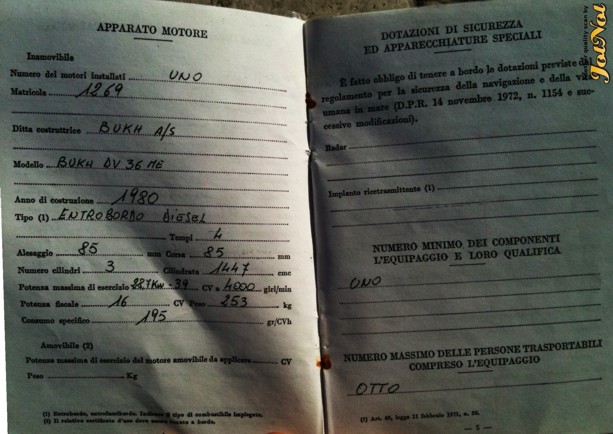 APPARATO MOTORE
Inamovibile
Numero dei motori installati UNO
Matricola 1269
Ditta costruttrice BUKH A/S
Modello BUKH DV 36 ME
Anno di costruzione 1980
Tipo (1) ENTROBORDO DIESEL
Tempi 4
Alesaggio 85 mm Corsa 85 mm
Numero cilindri 3 Cilindrata 1447 cmc
Potenza massima di esercizio 28,7 KW - 39 CV a 4000 giri/min
Potenza fiscale 16 CV Peso 253 kg
Consumo specifico 195 gr/CVh
Amovibile (2)
Potenza massima di esercizio del motore amovibile da applicare CV
Peso Kg
(1) Entrobordo, entrofuoribordo. Indicare il tipo di combustibile impiegato.
(2) Il relativo certificato d'uso deve essere tenuto a bordo.
DOTAZIONI DI SICUREZZA
ED APPARECCHIATURE SPECIALI
È fatto obbligo di tenere a bordo le dotazioni previste dal
regolamento per la sicurezza della navigazione e della vita
umana in mare (D.P.R. 14 novembre 1972, n. 1154 e suc-
cessive modificazioni).
Radar
Impianto ricetrasmittente (1)
NUMERO MINIMO DEI COMPONENTI
L'EQUIPAGGIO E LORO QUALIFICA
UNO
NUMERO MASSIMO DELLE PERSONE TRASPORTABILI
COMPRESO L'EQUIPAGGIO
OTTO
(1) Art. 40, legge 11 febbraio 1971, n. 50.
— 5 —
quality scan by
JotNot